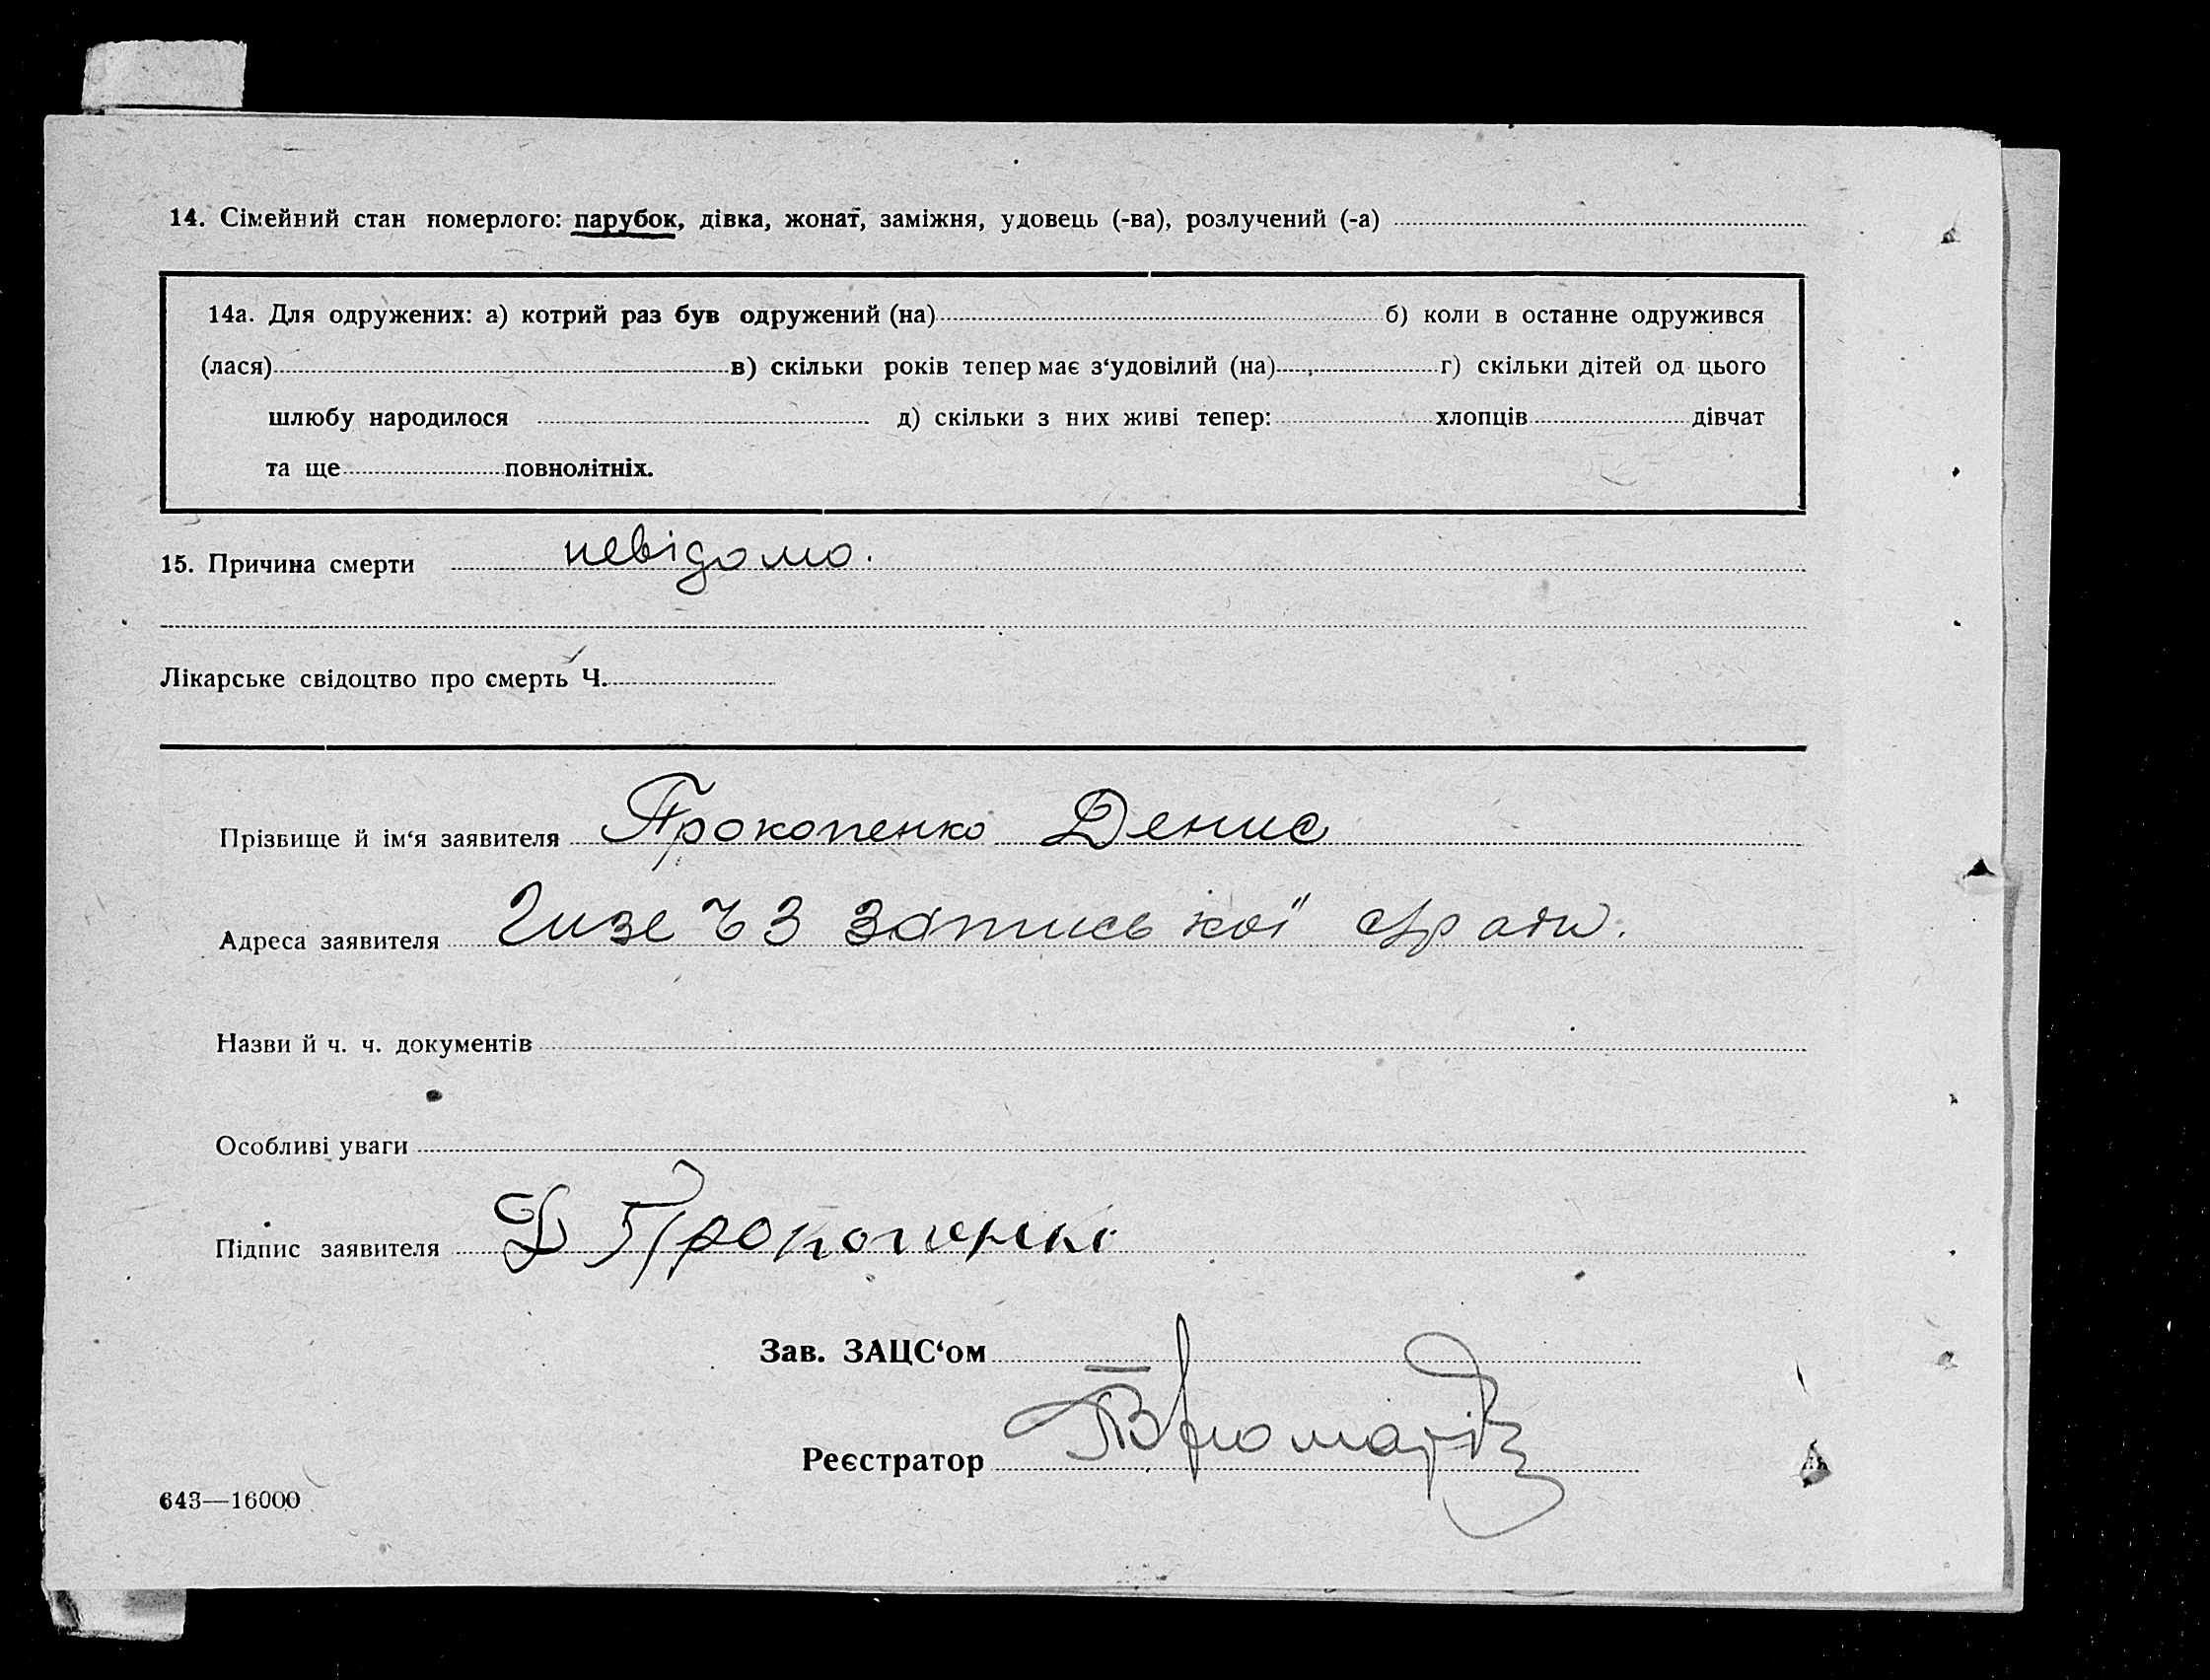 14. Сімейний стан померлого: парубок, дівка, жонат, заміжня, удовець (-ва), розлучений (-а)
14а. Для одружених: а) котрий раз був одружений (на) б) коли в останне одружився
(лася) в) скільки років тепер має з‘удовілий (на) г) скільки дітей од цього
шлюбу народилося д) скільки з них живі тепер: хлопців дівчат
та ще повнолітніх.
15. Причина смерти невідомо.
Лікарське свідоцтво про смерть Ч.
Прізвище й ім‘я заявителя Прокопенко Денис
Адреса заявителя 3
Назви й ч. ч. документів
Особливі уваги
Підпис заявителя Д Прокопенко
Зав. ЗАЦС‘ом
Реєстратор
643—16000